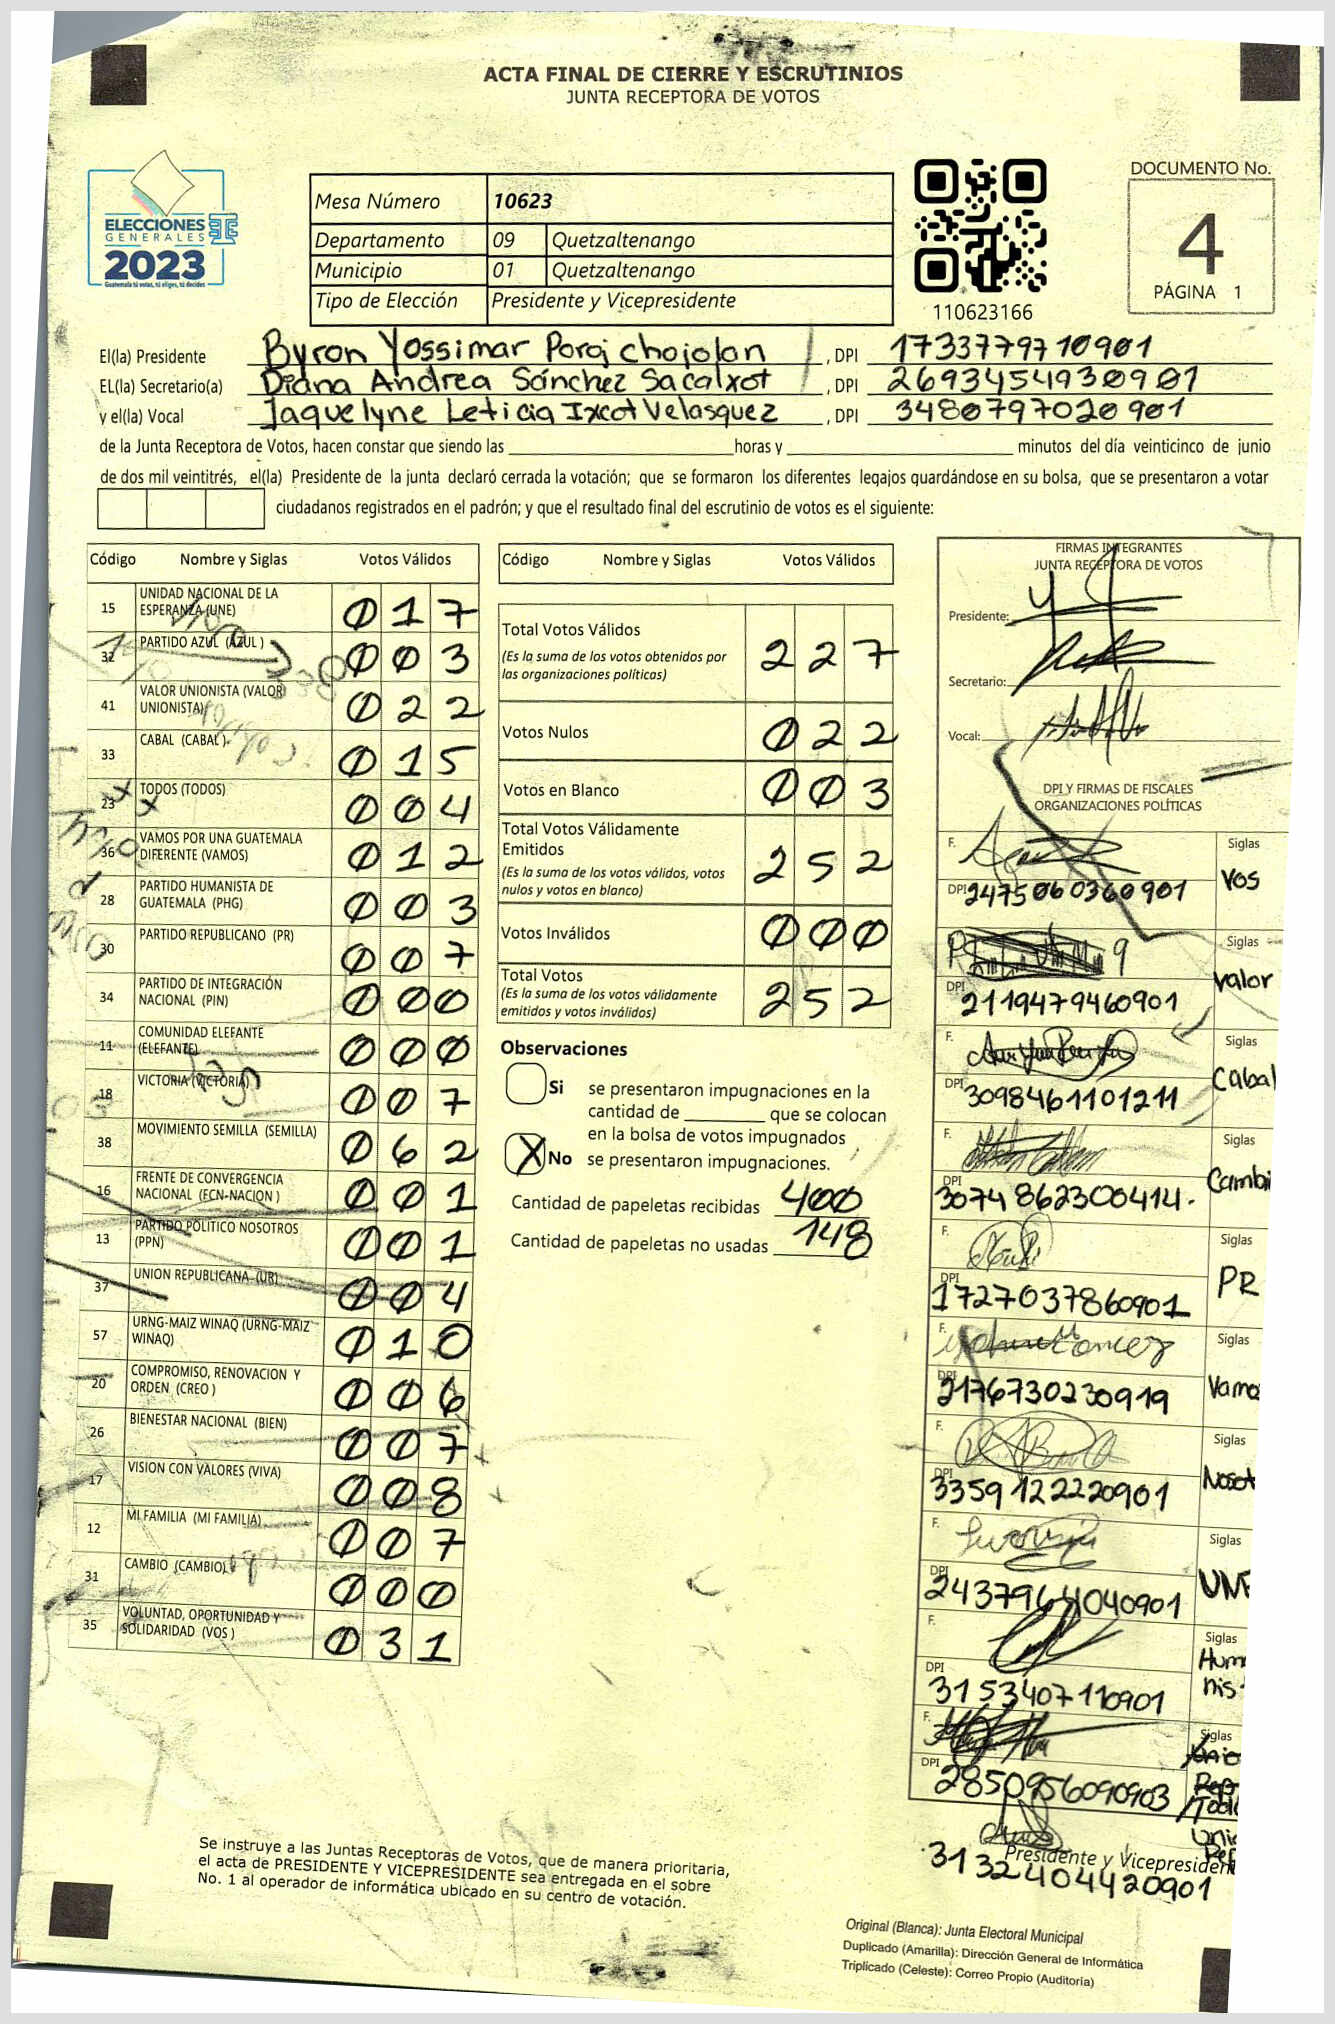 ACTA FINAL DE CIERRE Y ESCRUTINIOS
JUNTA RECEPTORA DE VOTOS
ELECCIONES
GENERALES
2023
Guatemala tú votas, tú eliges, tú decides
Mesa Número 10623
Departamento 09 Quetzaltenango
Municipio 01 Quetzaltenango
Tipo de Elección Presidente y Vicepresidente
110623166
DOCUMENTO No.
4
PÁGINA 1
El(la) Presidente Byron Yossimar Poroj Chojolan, DPI 1733779710901
EL(la) Secretario(a) Diana Andrea Sánchez Sacalxot, DPI 2693454930901
y el(la) Vocal Jaquelyne Leticia Ixcot Velasquez, DPI 3480797020901
de la Junta Receptora de Votos, hacen constar que siendo las horas y minutos del día veinticinco de junio
de dos mil veintitrés, el(la) Presidente de la junta declaró cerrada la votación; que se formaron los diferentes legajos guardándose en su bolsa, que se presentaron a votar
ciudadanos registrados en el padrón; y que el resultado final del escrutinio de votos es el siguiente:
Código Nombre y Siglas Votos Válidos
15 UNIDAD NACIONAL DE LA ESPERANZA (UNE) 017
32 PARTIDO AZUL (AZUL ) 003
41 VALOR UNIONISTA (VALOR UNIONISTA) 022
33 CABAL (CABAL ) 015
23 TODOS (TODOS) 004
36 VAMOS POR UNA GUATEMALA DIFERENTE (VAMOS) 012
28 PARTIDO HUMANISTA DE GUATEMALA (PHG) 003
30 PARTIDO REPUBLICANO (PR) 007
34 PARTIDO DE INTEGRACIÓN NACIONAL (PIN) 000
11 COMUNIDAD ELEFANTE (ELEFANTE) 000
18 VICTORIA (VICTORIA) 007
38 MOVIMIENTO SEMILLA (SEMILLA) 062
16 FRENTE DE CONVERGENCIA NACIONAL (FCN-NACION ) 001
13 PARTIDO POLITICO NOSOTROS (PPN) 001
37 UNION REPUBLICANA (UR) 004
57 URNG-MAIZ WINAQ (URNG-MAIZ WINAQ) 010
20 COMPROMISO, RENOVACION Y ORDEN (CREO ) 006
26 BIENESTAR NACIONAL (BIEN) 007
17 VISION CON VALORES (VIVA) 008
12 MI FAMILIA (MI FAMILIA) 007
31 CAMBIO (CAMBIO) 000
35 VOLUNTAD, OPORTUNIDAD Y SOLIDARIDAD (VOS ) 031
Código Nombre y Siglas Votos Válidos
Total Votos Válidos 227
(Es la suma de los votos obtenidos por
las organizaciones políticas)
Votos Nulos 022
Votos en Blanco 003
Total Votos Válidamente
Emitidos 252
(Es la suma de los votos válidos, votos
nulos y votos en blanco)
Votos Inválidos 000
Total Votos 252
(Es la suma de los votos válidamente
emitidos y votos inválidos)
Observaciones
Si se presentaron impugnaciones en la
cantidad de que se colocan
en la bolsa de votos impugnados
X No se presentaron impugnaciones.
Cantidad de papeletas recibidas 400
Cantidad de papeletas no usadas 148
FIRMAS INTEGRANTES
JUNTA RECEPTORA DE VOTOS
Presidente:
Secretario:
Vocal:
DPI Y FIRMAS DE FISCALES
ORGANIZACIONES POLÍTICAS
F. Siglas
DPI 2475060360901 VOS
Siglas
DPI 2119479460901 Valor
F. Siglas
DPI 3098461101211 Cabal
F. Siglas
DPI 3074862300414. Cambi
F. Siglas
DPI 1727037860901 PR
F. Siglas
DPI 2176730230919 Vamo
F. Siglas
DPI 3359122220901 Nosot
F. Siglas
DPI 2437964040901 UNE
F. Siglas
DPI 3153407110901 Huma
nis
F. Siglas
DPI 2850956090903
3132404420901
Presidente y Vicepresiden
Se instruye a las Juntas Receptoras de Votos, que de manera prioritaria,
el acta de PRESIDENTE Y VICEPRESIDENTE sea entregada en el sobre
No. 1 al operador de informática ubicado en su centro de votación.
Original (Blanca): Junta Electoral Municipal
Duplicado (Amarilla): Dirección General de Informática
Triplicado (Celeste): Correo Propio (Auditoría)